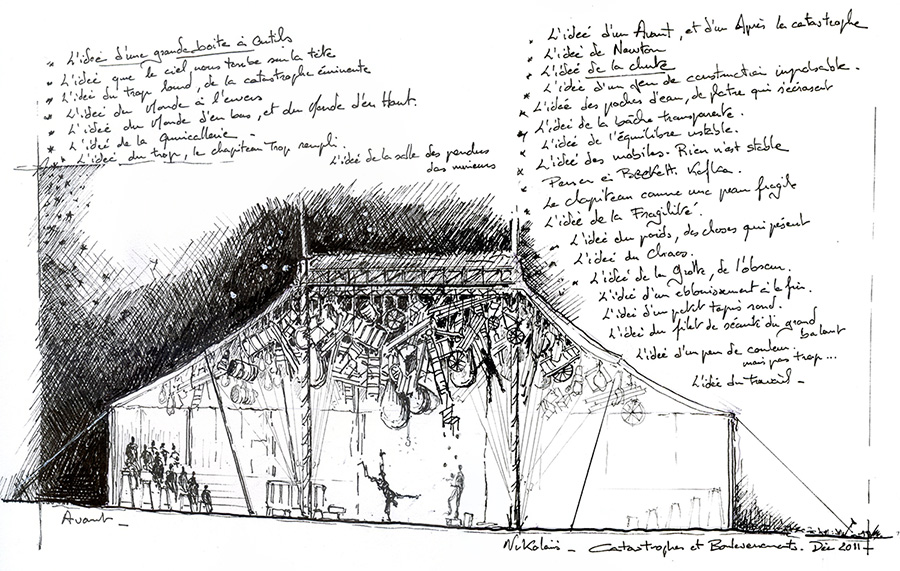 * L'ideé d'une grande boite à outils
* L'ideé que le ciel nous tombe sur la tête
* L'ideé du trop lourd, de la catastrophe éminente
* L'ideé du Monde à l'envers
* L'ideé du Monde d'en bas, et du Monde d'en Haut.
* L'ideé de la quincallerie
* L'ideé du trop, le chapiteau trop rempli.
L'ideé de la salle des pendus
des mineurs
* L'ideé d'un Avant, et d'un Après la catastrophe
* L'ideé de Newton
* L'ideé de la chute
* L'ideé d'un jeu de construction improbable.
* L'ideé des poches d'eau, de platre qui s'écrasent
* L'ideé de la bâche transparente.
* L'ideé de l'équilibre instable.
* L'ideé des mobiles. Rien n'est stable
Penser à Beckett. Kafka.
Le chapiteau comme une peau fragile
* L'ideé de la Fragilité.
* L'ideé du poids, des choses qui pèsent
* L'ideé du Chaos.
* L'ideé de la grotte, de l'obscur.
L'ideé d'un éblouissement à la fin.
L'ideé d'un petit tapis rond.
L'ideé du filet de sécurité du grand
balant
L'ideé d'un peu de couleur.
mais pas trop...
L'ideé du travail -
Avant -
Nikolaüs - Catastrophes et Bouleversements. Déc 2011